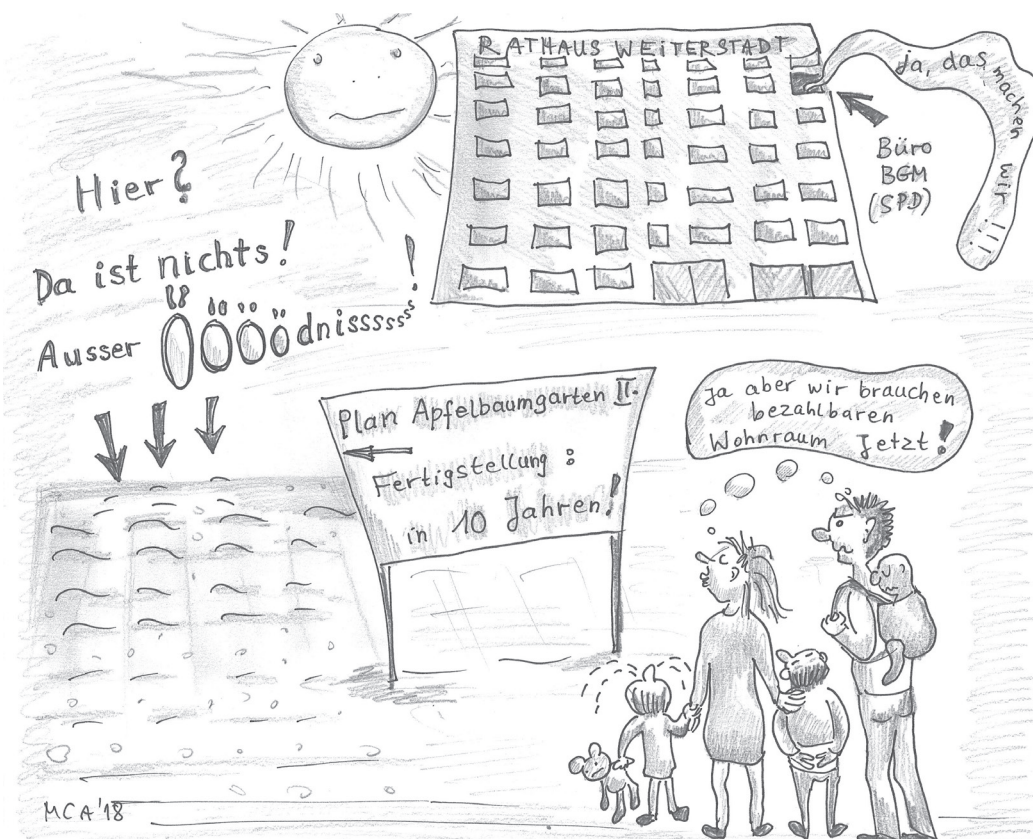 RATHAUS WEITERSTADT
ja, das machen wir !!!!
Büro
BGM
(SPD)
Hier?
Da ist nichts!
Ausser ÖÖÖÖdnisssssss!
Plan Apfelbaumgarten II.
Fertigstellung :
in 10 Jahren!
Ja aber wir brauchen
bezahlbaren
Wohnraum Jetzt!
MCA'18